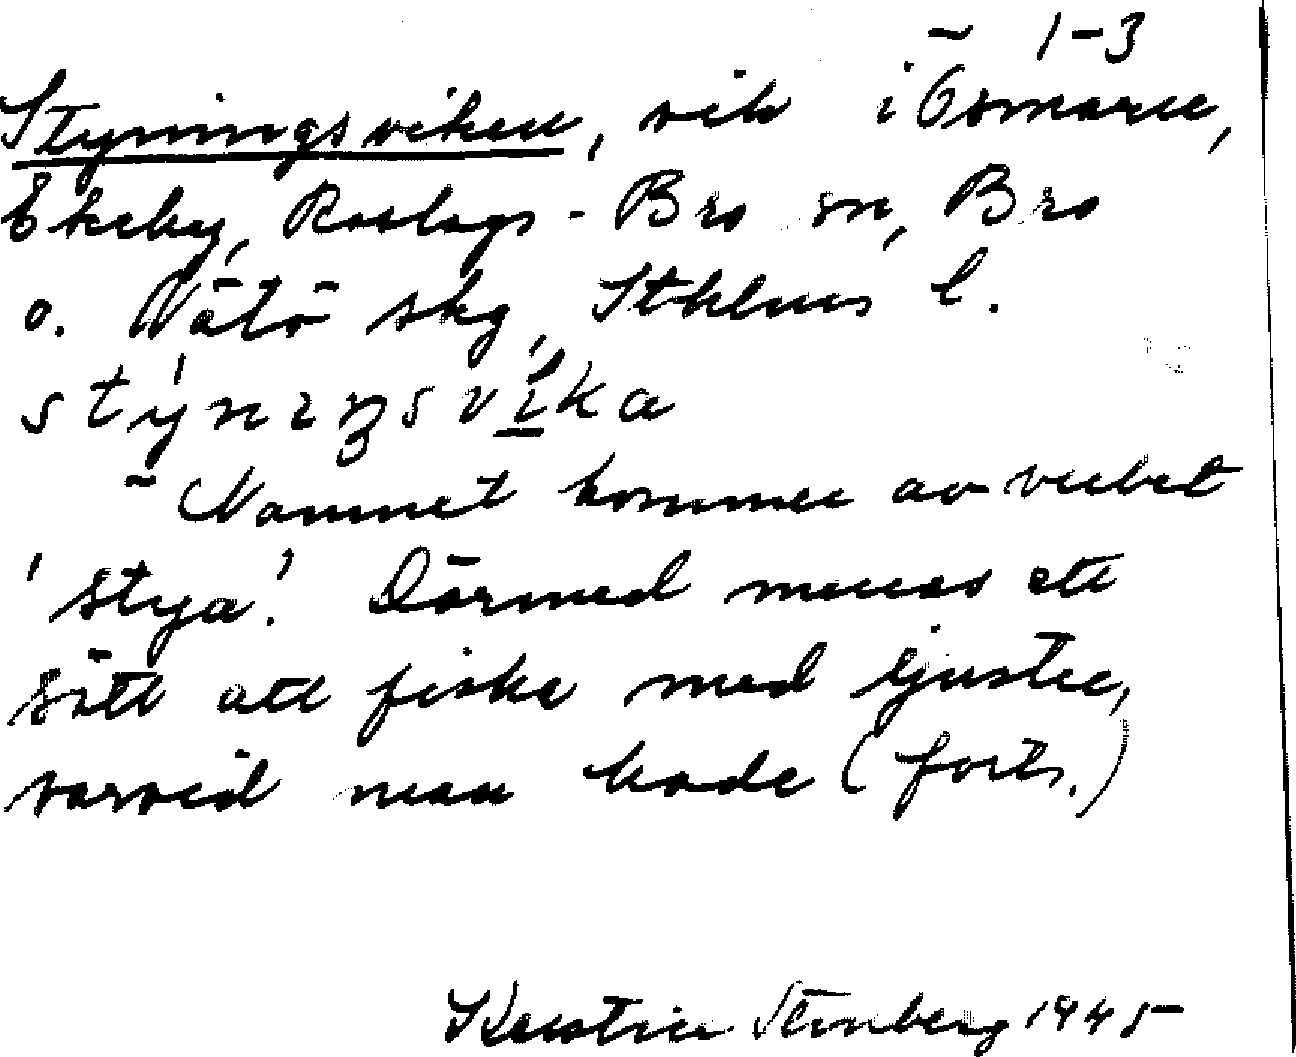 ~ 1-3
Styningsviken, vik i Ösmaren,
Ekeby, Roslags-Bro sn, Bro
o. Vätö skg, Sthlms l.
Namnet kommer av verbet
'stya'. Därmed menas ett
sätt att fiska med ljuster,
varvid man hade (forts.)
Kerstin Stenberg 1945